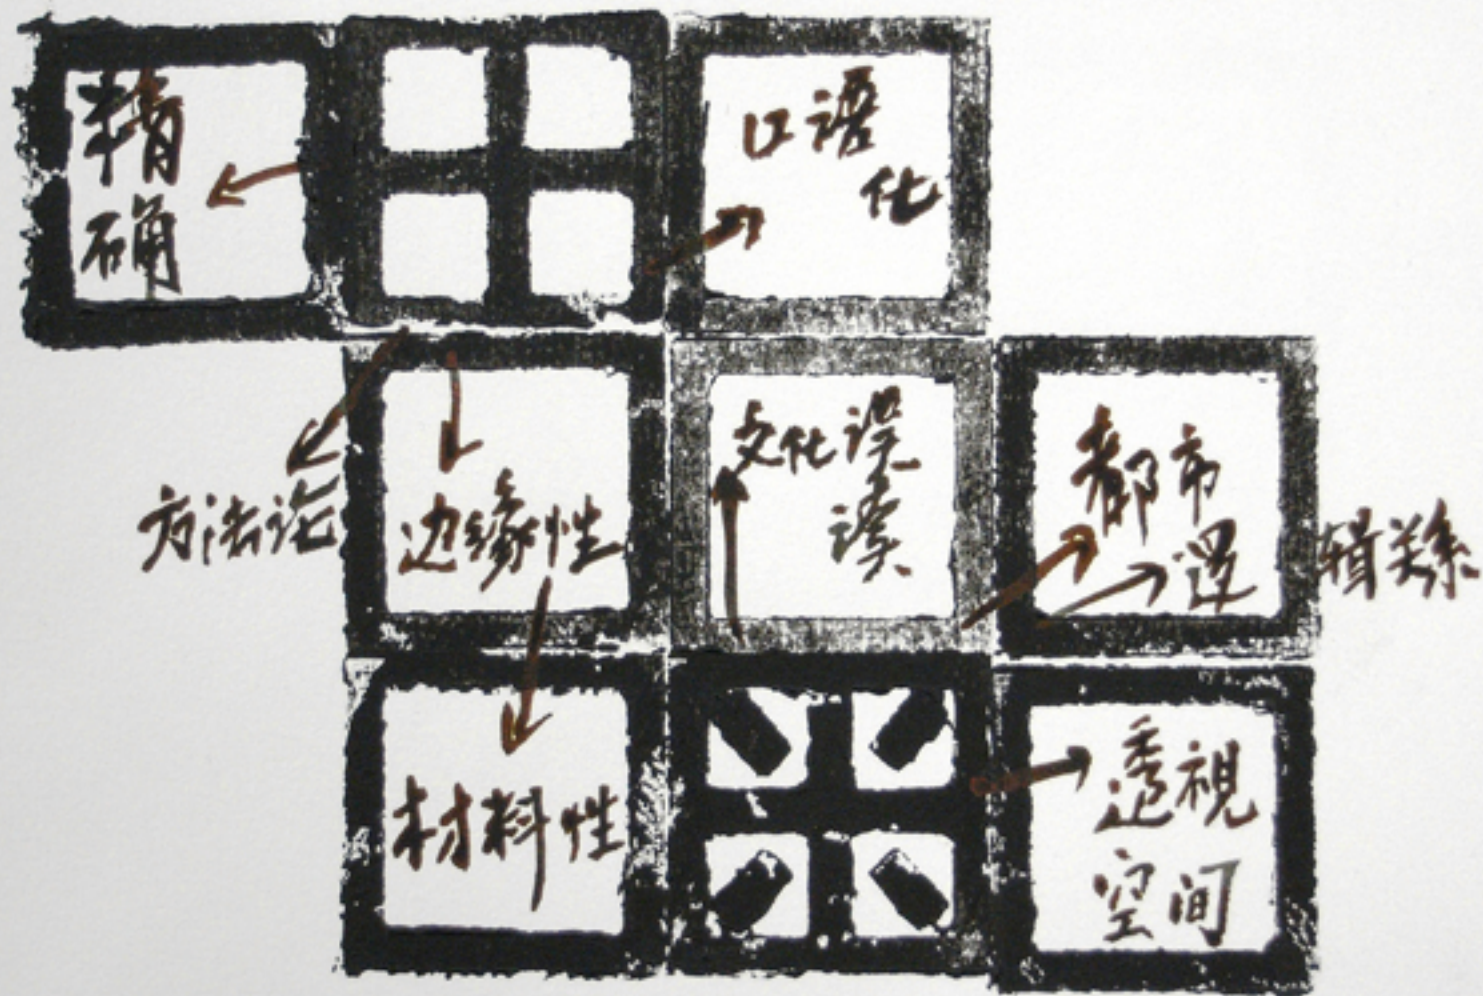 精
确
口语
化
方法论
边缘性
文化误
读
都市
逻辑关系
材料性
透视
空间